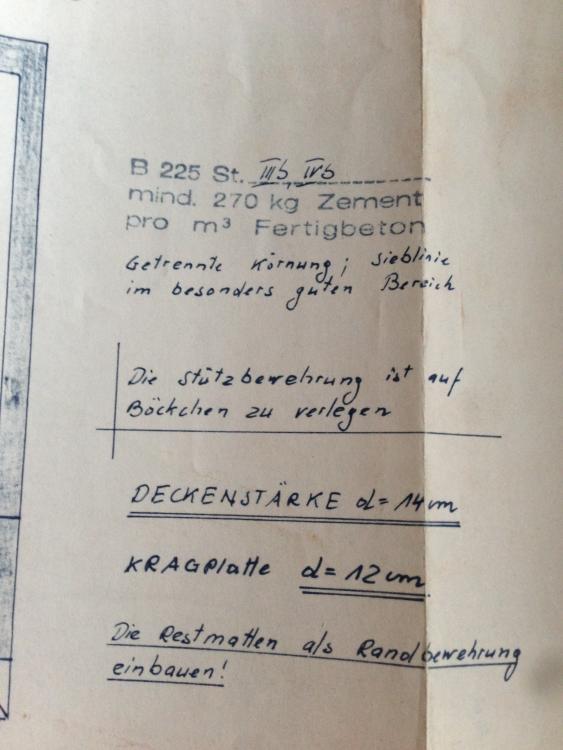 B 225 St. IIIb IVb
mind. 270 kg Zement
pro m³ Fertigbeton
Getrennte Körnung; Sieblinie
im besonders guten Bereich
Die Stützbewehrung ist auf
Böckchen zu verlegen
DECKENSTÄRKE d= 14 cm
KRAGPlatte d= 12 cm
Die Restmatten als Randbewehrung
einbauen!